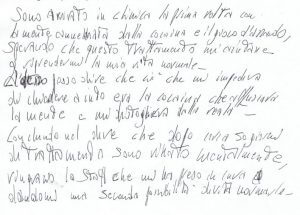 Sono arrivato in clinica la prima volta con
la mente concentrata dalla cocaina e il gioco d'azzardo,
sperando che questo trattamento mi aiutasse
a riprendermi la mia vita normale.
posso dire che ciò che mi impediva
di chiudere era la cocaina che offuscava
la mente e mi dalla realtà.
Concludo nel dire che dopo circa
di trattamento sono rinato mentalmente,
ringrazio lo staff che mi ha preso in cura e
dandomi una seconda possibilità di vita normale.